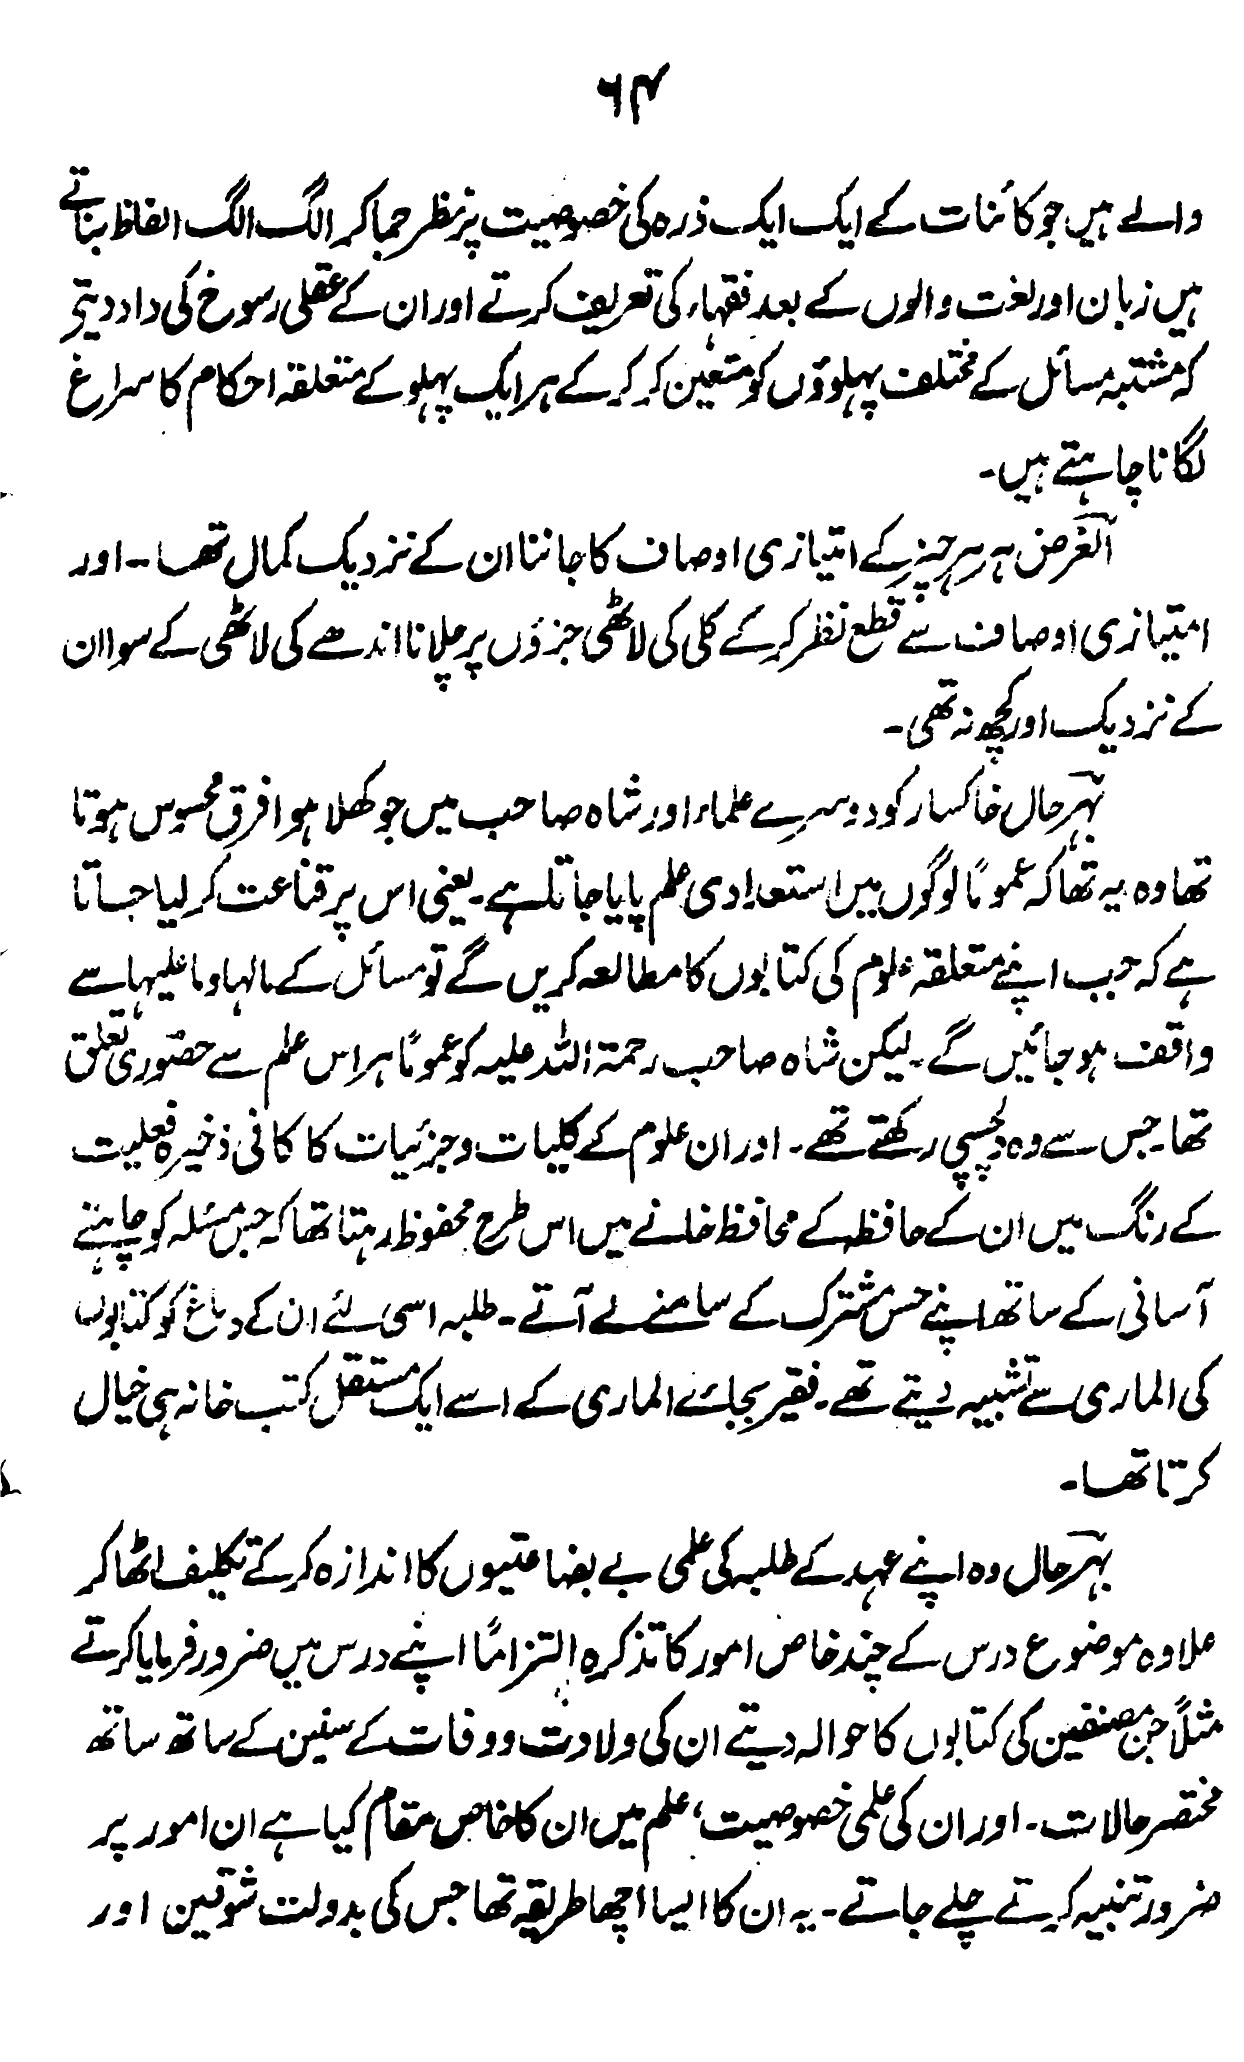 ۶۴
والے ہیں جو کائنات کے ایک ایک ذرہ کی خصوصیت پر نظر جما کر الگ الگ الفاظ بناتے
ہیں زبان اور لغت والوں کے بعد فقہاء کی تعریف کرتے اور ان کے عقلی رسوخ کی داد دیتے
کہ مشتبہ مسائل کے مختلف پہلوؤں کو متعین کر کر کے ہر ایک پہلو کے متعلقہ احکام کا سراغ
لگانا چاہتے ہیں۔
الغرض ہر ہر چیز کے امتیازی اوصاف کا جاننا ان کے نزدیک کمال تھا۔ اور
امتیازی اوصاف سے قطع نظر کر کے کلی کی لاٹھی جزؤں پر چلانا اندھے کی لاٹھی کے سوا ان
کے نزدیک اور کچھ نہ تھی۔
بہرحال خاکسار کو دوسرے علماء اور شاہ صاحب میں جو کھلا ہوا فرق محسوس ہوتا
تھا وہ یہ تھا کہ عموماً لوگوں میں استعدادی علم پایا جاتا ہے۔ یعنی اس پر قناعت کر لیا جاتا
ہے کہ جب اپنے متعلقہ علوم کی کتابوں کا مطالعہ کریں گے تو مسائل کے مالہا وما علیہا سے
واقف ہو جائیں گے۔ لیکن شاہ صاحب رحمۃ اللہ علیہ کو عموماً ہر اس علم سے حضوری تعلق
تھا۔ جس سے وہ دلچسپی رکھتے تھے۔ اور ان علوم کے کلیات و جزئیات کا کافی ذخیرہ فعلیت
کے رنگ میں ان کے حافظہ کے محافظ خانے میں اس طرح محفوظ رہتا تھا کہ جس مسئلہ کو چاہتے
آسانی کے ساتھ اپنے حس مشترک کے سامنے لے آتے۔ طلبہ اسی لئے ان کے دماغ کو کتابوں
کی الماری سے تشبیہ دیتے تھے۔ فقیر بجائے الماری کے اسے ایک مستقل کتب خانہ ہی خیال
کرتا تھا۔
بہرحال وہ اپنے عہد کے طلبہ کی علمی بے بضاعتیوں کا اندازہ کر کے تکلیف اٹھا کر
علاوہ موضوع درس کے چند خاص امور کا تذکرہ التزاماً اپنے درس میں ضرور فرمایا کرتے
مثلاً جن مصنفین کی کتابوں کا حوالہ دیتے ان کی ولادت و وفات کے سنین کے ساتھ ساتھ
مختصر حالات۔ اور ان کی علمی خصوصیت، علم میں ان کا خاص مقام کیا ہے ان امور پر
ضرور تنبیہ کرتے چلے جاتے۔ یہ ان کا ایسا اچھا طریقہ تھا جس کی بدولت شوقین اور